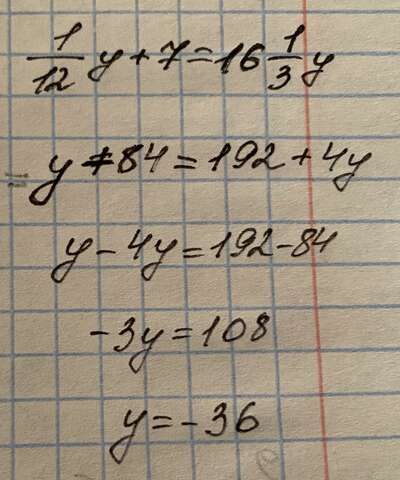 1/12 y + 7 = 16 1/3 y
y + 84 = 192 + 4y
y - 4y = 192 - 84
-3y = 108
y = -36